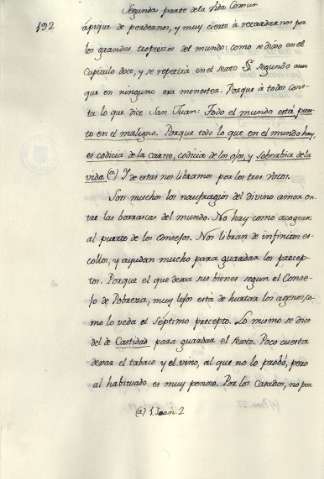 Segunda parte de la Vida Comun
192
à pique de perdernos, y muy cierto à recordarnos por
los grandes tropiezos del mundo: como se dixo en el
Capitulo doce, y se repetirà en el texto §. segundo aun
que en ninguno era menester. Porque à todos cons-
ta lo que dice San Juan: Todo el mundo está pues-
to en el maligno. Porque todo lo que en el mundo hay,
es codicia de la carne, codicia de los ojos, y soberbia de la
vida (a) Y de estas nos libramos por los tres Votos.
Son muchos los naufragios del divino amor en-
tre las borrascas del mundo. No hay como acogerse
al puerto de los consejos. Nos libran de infinitos es-
collos, y ayudan mucho para guardar los precep-
tos. Porque el que dexa sus bienes segun el Conse-
jo de Pobreza, muy lejos está de hurtar los agenos, co-
mo lo veda el Septimo precepto. Lo mismo se dice
del de Castidad para guardar el Sexto. Poco cuesta
dexar el tabaco y el vino, al que no lo probó, pero
al habituado es muy penoso. Por los Casados, no por
(a) 1 Joan 2